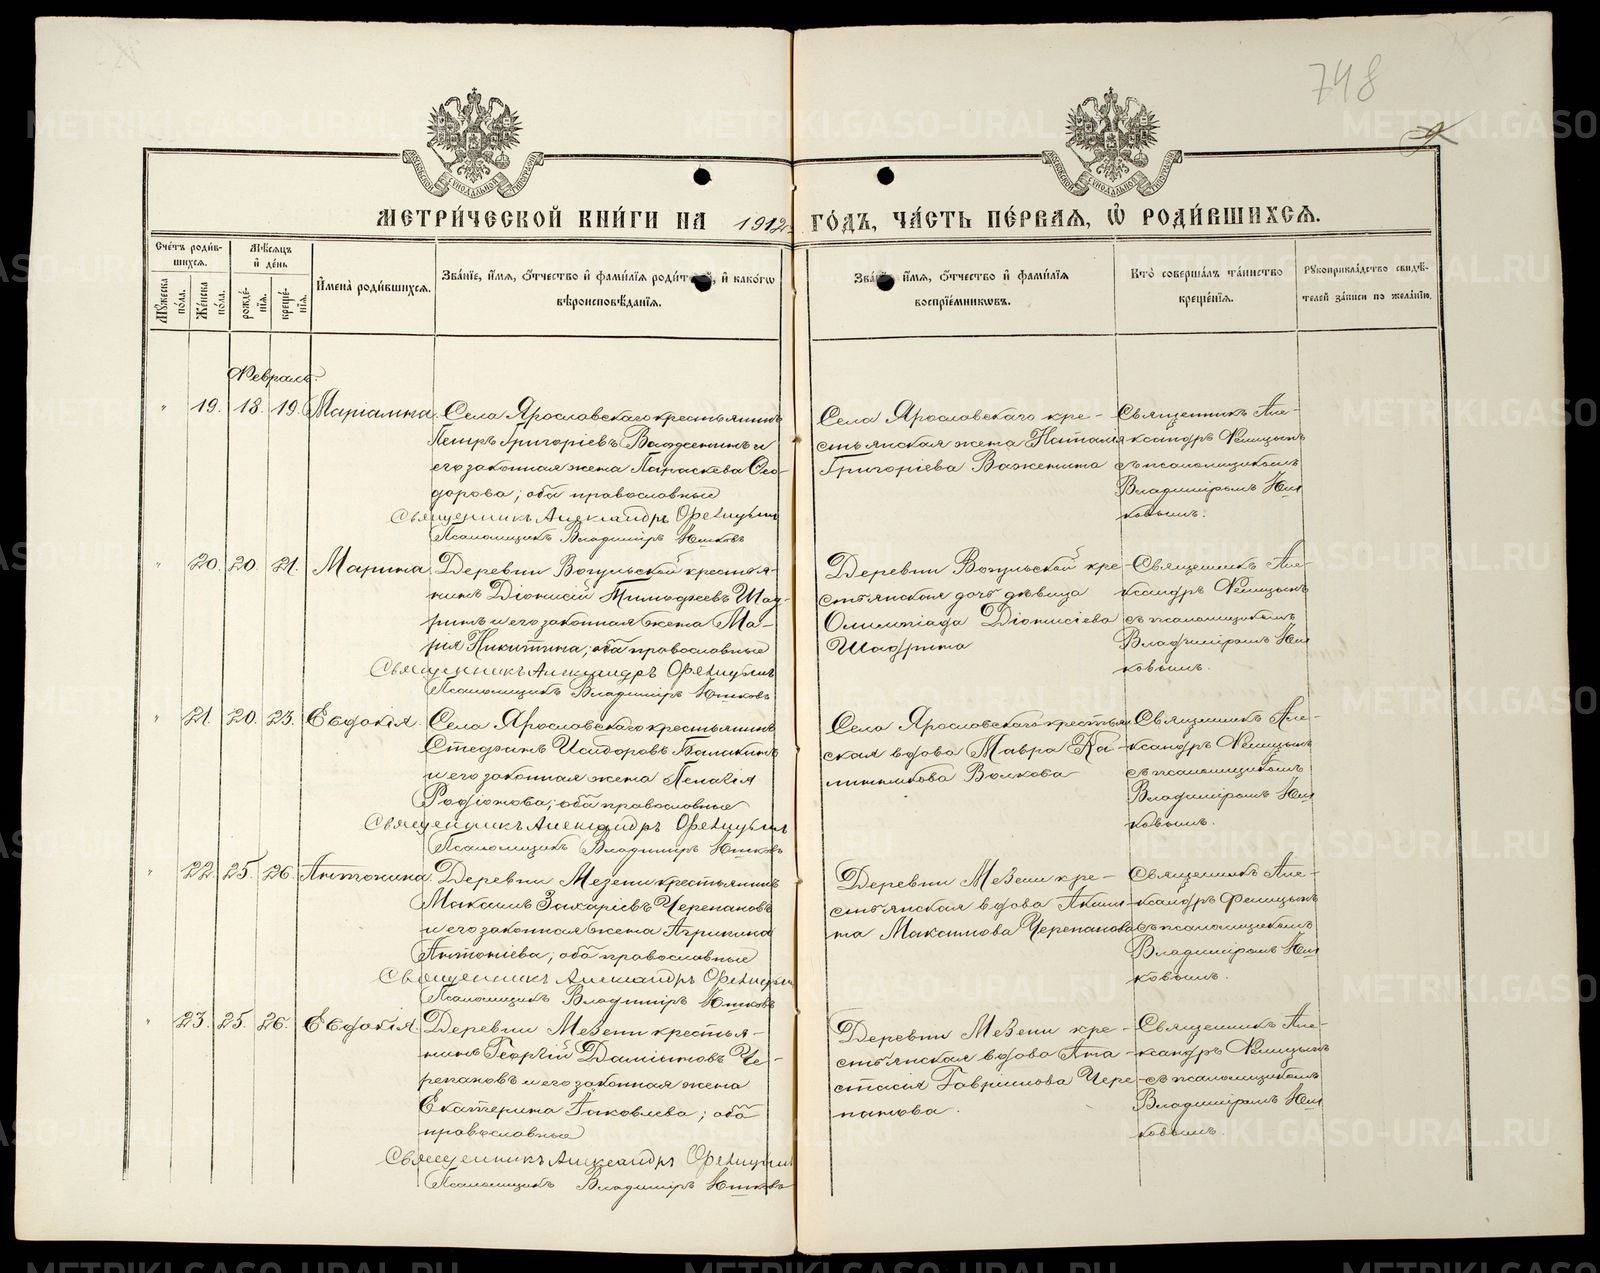 748
МЕТРИ́ЧЕСКОЙ КНИ́ГИ НА 1912 ГО́ДЪ, ЧА́СТЬ ПЕ́РВАЯ, Ѡ҆ РОДИ́ВШИХСЯ.
Сче́тъ роди́в-
шихся.
Му́жеска по́ла.
Же́нска по́ла.
Мѣ́сяцъ
и҆ де́нь
рожде́-
нїя.
креще́-
нїя.
И҆мена̀ роди́вшихся.
Зва́нїе, и҆́мя, ѻ҆́тчество и҆ фами́лїя роди́телей, и҆ како́гѡ
вѣроисповѣ́данїя.
Зва́нїе, и҆́мя, ѻ҆́тчество и҆ фами́лїя
воспрїе́мникѡвъ.
Кто̀ соверша́лъ та́инство
креще́нїя.
Рукоприкла́дство свидѣ́-
телей за́писи по жела́нїю.
Февраль.
" 19. 18. 19. Маріамна. Села Ярославскаго крестьянинъ
Петръ Григоріевъ Важенинъ и
его законная жена Параскева Ѳео-
дорова; оба православные
Священникъ Александръ Фелицынъ
Псаломщикъ Владиміръ Юшковъ
Села Ярославскаго кре-
стьянская жена Наталія
Григоріева Важенина
Священникъ Але-
ксандръ Фелицынъ
съ псаломщикомъ
Владиміромъ Юш
ковымъ.
" 20. 20. 21. Марина. Деревни Вогульской крестья-
нинъ Діонисій Тимофеевъ Шад-
ринъ и его законная жена Ма-
рія Никитина; оба православные
Священникъ Александръ Фелицынъ
Псаломщикъ Владиміръ Юшковъ
Деревни Вогульской кре-
стьянская дочь дѣвица
Олимпіада Діонисіева
Шадрина
Священникъ Але-
ксандръ Фелицынъ
съ псаломщикомъ
Владиміромъ Юш
ковымъ.
" 21. 20. 23. Евдокія. Села Ярославскаго крестьянинъ
Стефанъ Исидоровъ Балакинъ
и его законная жена Пелагія
Родіонова; оба православные
Священникъ Александръ Фелицынъ
Псаломщикъ Владиміръ Юшковъ
Села Ярославскаго крестьян
ская вдова Мавра Ка-
линникова Волкова
Священникъ Але-
ксандръ Фелицынъ
съ псаломщикомъ
Владиміромъ Юш
ковымъ.
" 22. 25. 26. Антонина. Деревни Мезени крестьянинъ
Максимъ Захаріевъ Черепановъ
и его законная жена Агрипина
Антоніева; оба православные
Священникъ Александръ Фелицынъ
Псаломщикъ Владиміръ Юшковъ
Деревни Мезени кре-
стьянская вдова Акили
на Максимова Черепанова
Священникъ Але-
ксандръ Фелицынъ
съ псаломщикомъ
Владиміромъ Юш
ковымъ.
" 23. 25. 26. Евдокія. Деревни Мезени крестья-
нинъ Георгій Даміановъ Че-
репановъ и его законная жена
Екатерина Яковлева; оба
православные
Священникъ Александръ Фелицынъ
Псаломщикъ Владиміръ Юшковъ
Деревни Мезени кре-
стьянская вдова Ана
стасія Гавриилова Чере
панова.
Священникъ Але-
ксандръ Фелицынъ
съ псаломщикомъ
Владиміромъ Юш
ковымъ.
METRIKI.GASO-URAL.RU